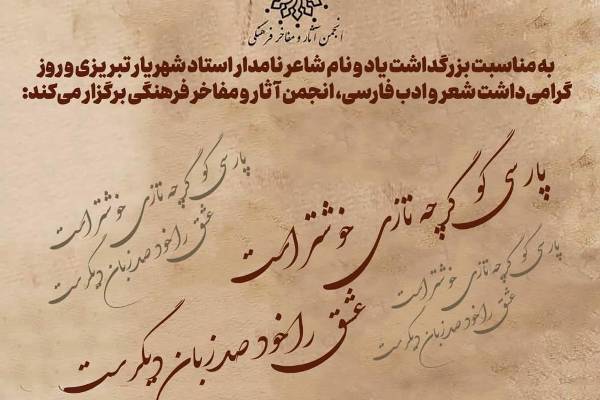 انجمن آثار و مفاخر فرهنگی
به مناسبت بزرگداشت یاد و نام شاعر نامدار استاد شهریار تبریزی و روز
گرامی‌داشت شعر و ادب فارسی، انجمن آثار و مفاخر فرهنگی برگزار می‌کند:
پارسی گو گرچه تازی خوشتر است
عشق را خود صد زبان دیگر ست
پارسی گو گرچه تازی خوشتر است
عشق را خود صد زبان دیگر ست
پارسی گو گرچه تازی خوشتر است
عشق را خود صد زبان دیگر ست